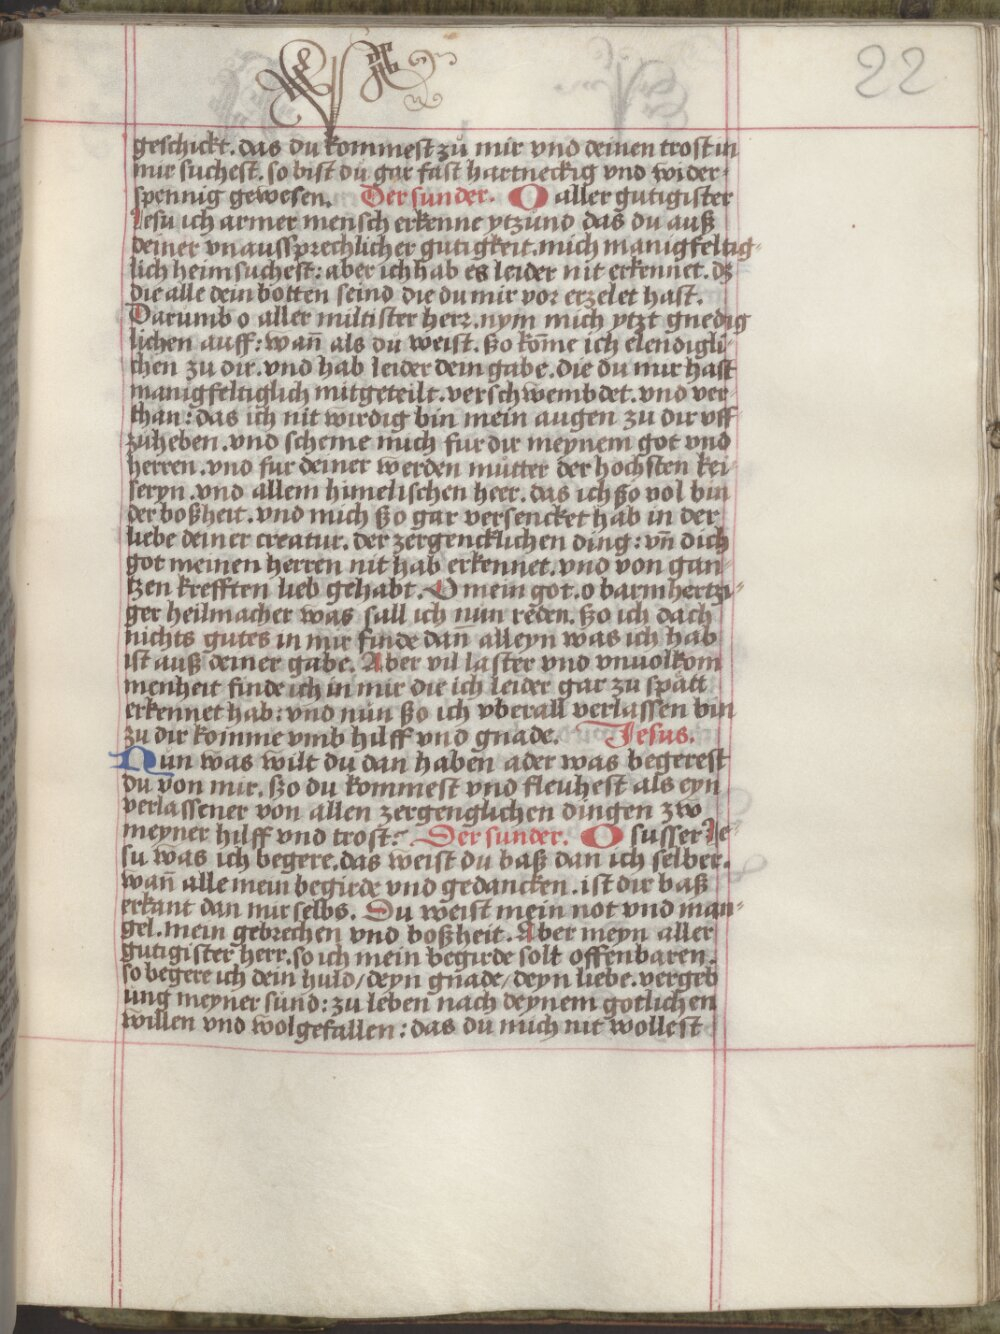 22
geschickt. das du kommest zů mir vnd deinen trost in
mir suchest. so bist du gar fast hartneckig vnd wider-
spennig gewesen. Der sunder. O aller gutigister
Jesu ich armer mensch erkenne ytzund das du auß
deiner vnaussprechlicher gutigkeit. mich manigfeltig-
lich heimsuchest: aber ich hab es leider nit erkennet. dz
die alle dein botten seind die du mir vor erzelet hast.
Darumb o aller miltister herz. nym mich ytzt gnedig
lichen auff: wañ als du weist. ßo kōme ich elendigli-
chen zu dir. vnd hab leider dein gabe. die du mir hast
manigfeltiglich mitgeteilt. verschwembdet. vnd ver-
than: das ich nit wirdig bin mein augen zu dir vff
zuheben. vnd scheme mich fur dir meynem got vnd
herren. vnd fur deiner werden mutter der hochsten kei-
seryn. vnd allem himelischen heer. das ich ßo vol bin
der boßheit. vnd mich ßo gar versencket hab in der
liebe deiner creatur. der zergencklichen ding: vñ dich
got meinen herren nit hab erkennet. vnd von gan-
tzen krefften lieb gehabt. O mein got. o barmhertzi-
ger heilmacher was sall ich nun reden. ßo ich dach
nichts gutes in mir finde dañ alleyn was ich hab
ist auß deiner gabe. Aber vil laster vnd vnuolkom
menheit finde ich in mir die ich leider gar zu spatt
erkennet hab: vnd nun ßo ich vberall verlassen bin
zu dir komme vmb hilff vnd gnade. Jesus.
Nun was wilt du dan haben ader was begerest
du von mir. ßo du kommest vnd fleuhest als eyn
verlassener von allen zergenglichen dingen zw
meyner hilff vnd trost: Der sunder. O susser Je-
su was ich begere. das weist du baß dan ich selber.
wañ alle mein begirde vnd gedancken. ist dir baß
erkant dan mir selbs. Du weist mein not vnd man-
gel. mein gebrechen vnd boßheit. Aber meyn aller
gutigister herr. so ich mein begirde solt offenbaren.
so begere ich dein huld/ deyn gnade/ deyn liebe. vergeb
ung meyner sund: zu leben nach deynem gotlichen
willen vnd wolgefallen: das du mich nit wollest